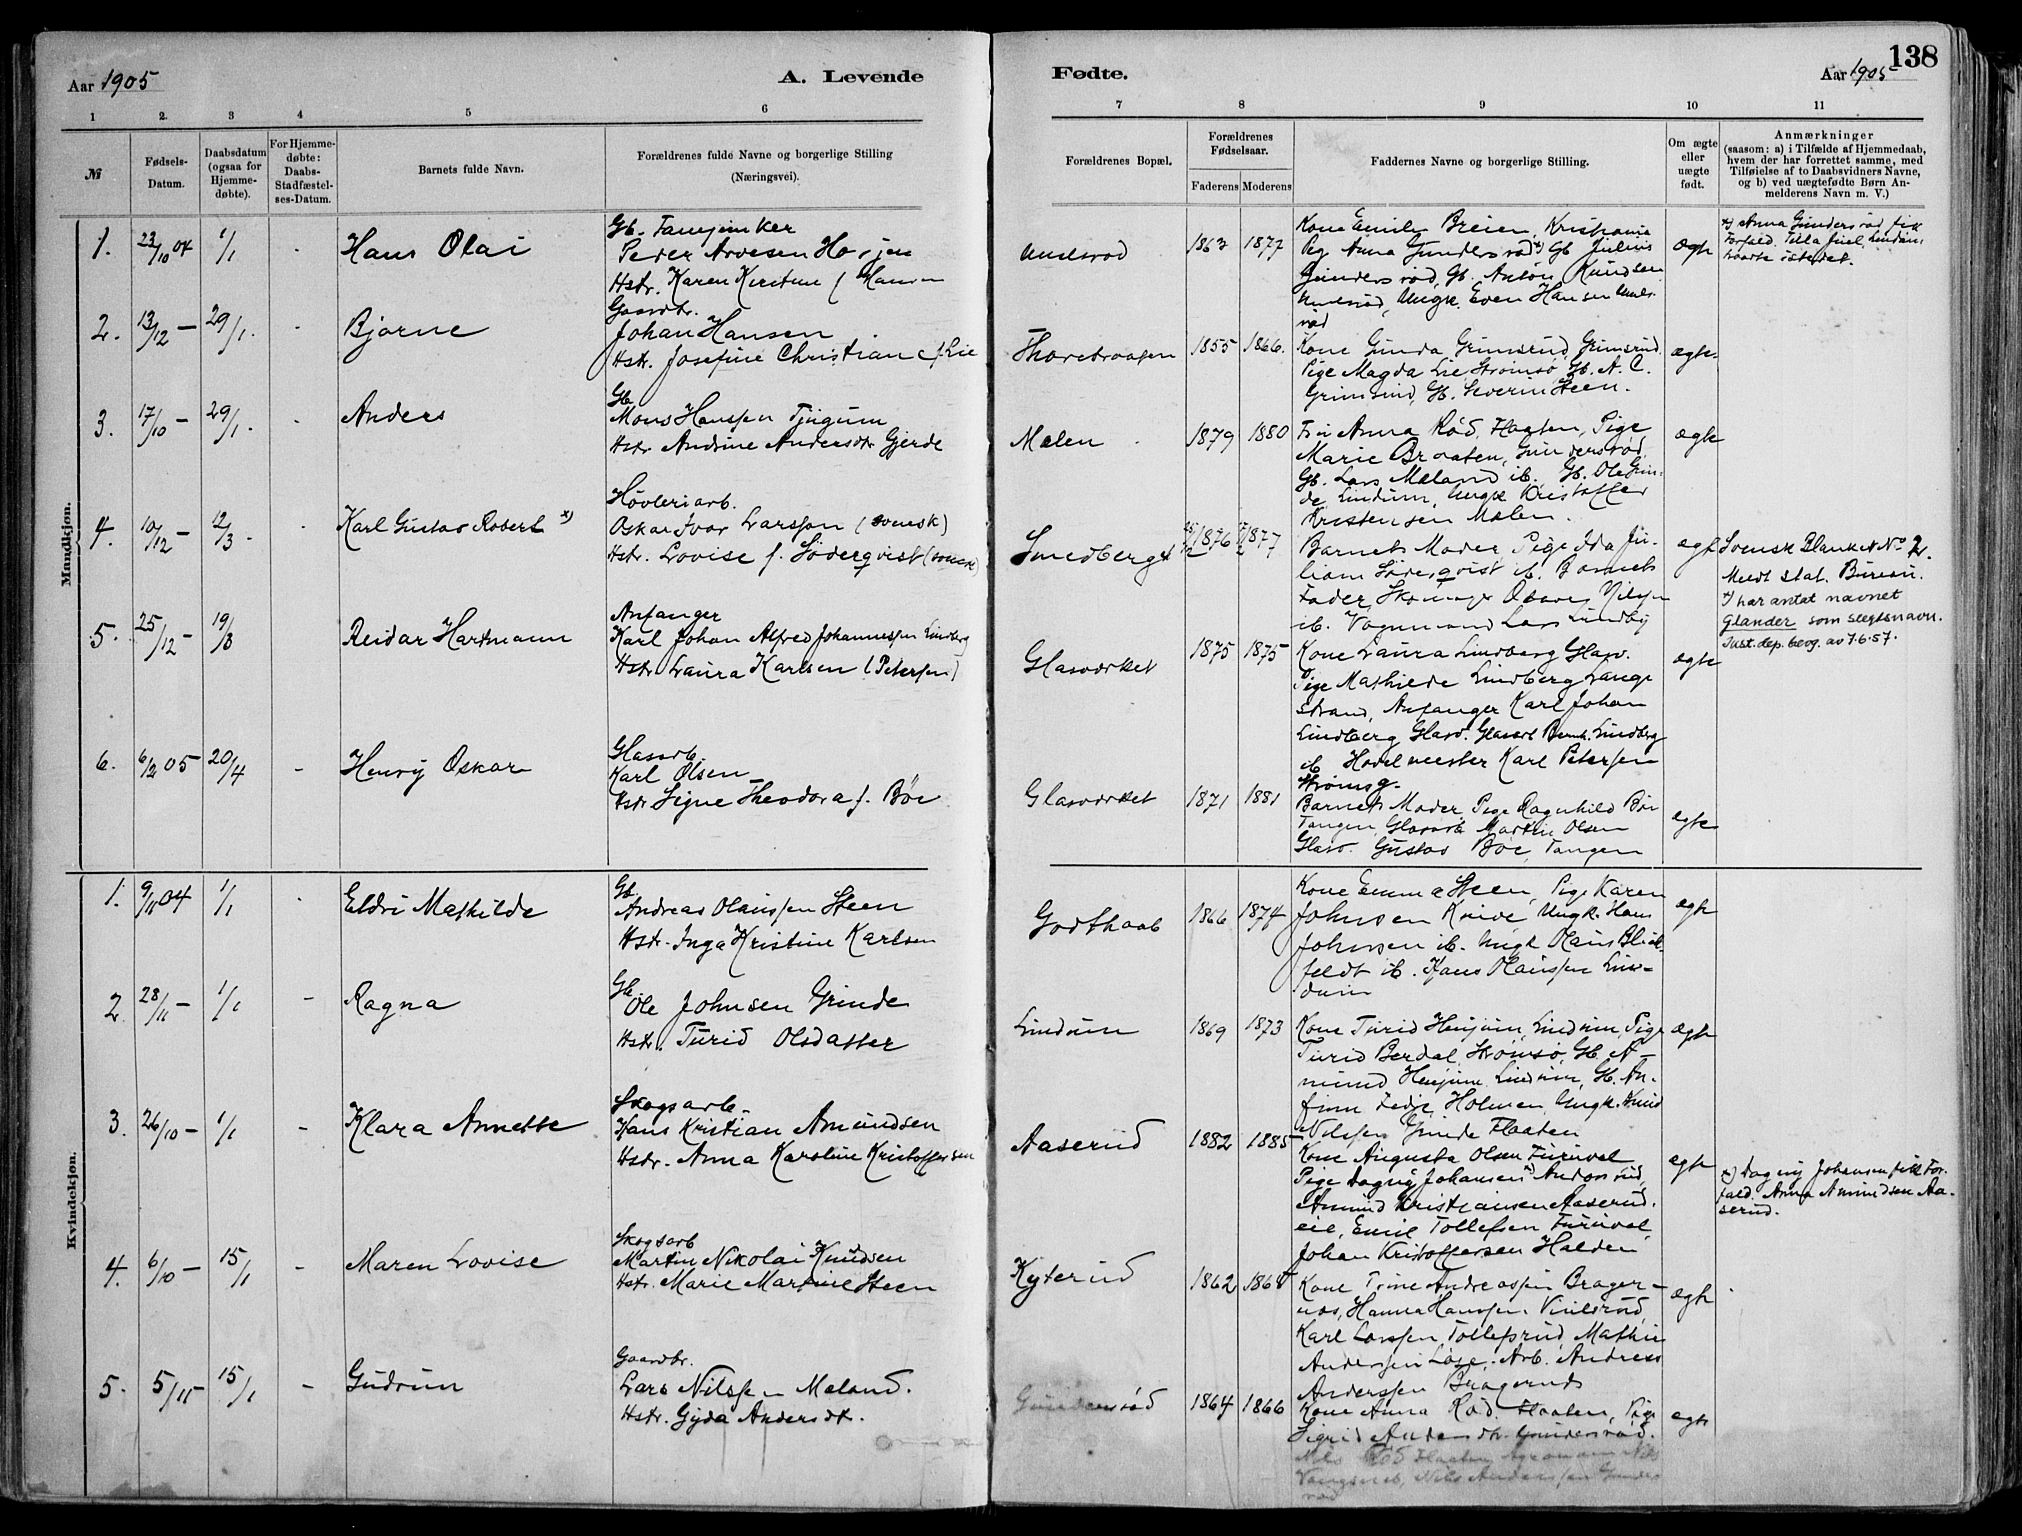 Aar 1905
A. Levende
1 2. 3 4 5 6
№
Fødsels-
Datum.
Daabsdatum
(ogsaa for
Hjemme-
døbte).
For Hjemme-
døbte:
Daabs-
Stadfæstel-
ses-Datum.
Barnets fulde Navn.
Forældrenes fulde Navne og borgerlige Stilling
(Næringsvei).
Mandkjøn.
1. 23/10 04 1/1 - Hans Olai
Peder Arvesen
Hstr. Karen Kirstine
2. 13/12 - 29/1. - Bjarne
Gaardbr.
Johan Hansen
Hstr. Josefine Christian f. Lie
3. 17/10 - 29/1. - Anders
Gb.
Mons Hanssen Tjugum
Hstr. Andrine Andersdtr Gjerde
4. 10/12 - 12/3 - Karl Gustav Robert x)
Høvleriarb.
Oskar Ivar Larsson (svensk)
Hstr. Lovise f. Söderqvist (svensk)
5. 25/12 - 19/3 Reidar Hartmann
Anfanger
Karl Johan Alfred Johannessen Lindberg
Hstr. Laura Karlsen (Petersen)
6. 6/2 05 20/4 - Henry Oskar
Glasarb.
Karl Olsen
Hstr Signe Theodora f. Bøe
Kvindekjøn.
1. 9/11 04 1/1 - Eldri Mathilde
Gb.
Andreas Olaussen Steen
Hstr. Inga Kristine Karlsen
2 28/11 - 1/1 - Ragna
Gb.
Ole Johnsen Grinde
Hstr. Turid Olsdatter
3. 26/10 - 1/1 - Klara Annette
Skogsarb.
Hans Kristian Amundsen
Hstr. Anna Karoline Kristoffersen
4. 6/10 - 15/1 - Maren Lovise
Skogsarb
Martin Nikolai Knudsen
Hstr. Marie Martine Steen
5. 5/11 - 15/1 - Gudrun
Gaardbr.
Lars Nilssen Meland.
Hstr. Gyda Andersdt.
Fødte.
Aar 1905
138
7 8 9 10 11
Forældrenes Bopæl.
Forældrenes
Fødselsaar.
Faderens Moderens
Faddernes Navne og borgerlige Stilling.
Om ægte
eller
uægte
født.
Anmærkninger
(saasom: a) i Tilfælde af Hjemmedaab,
hvem der har forrettet samme, med
Tilføielse af to Daabsvidners Navne,
og b) ved uægtefødte Børn An-
melderens Navn m. V.)
1877
Kone Emilie Breien, Kristiania
Pig Anna Gundersrød x) Gb Julius
Gundersrød, Gb. Anton Knudsen
Ungk. Even Hansen
rød
ægte
x) Anna Gundersrød fik
Forfald. Tilla Juel, Lindum,
1855 1866.
Kone Gunda Grimsrud, Grimsrud.
Pige Magda Lie Strømsø, Gb. A. C.
Grimsrud, Gb. Severin Steen.
ægte
Mælen 1879 1880
Anna Rød, Flaaten, Pige
Marie Braaten, Gundersrød.
Gb. Lars Meland ib. Gb. Ole Grin-
de Lindum, Ungk Kristoffer
Kristensen Mælen.
ægte
Smedberget 1876 1877
Barnets Moder, Pige Ida Ju-
liam Söderqvist ib. Barnets
Fader, Skomager Oskar Nilsen
ib. Vognmand Lars Lundby
ægte
Svensk Blanket No 2.
Meldt stat. Bureau.
x) har antat navnet
Glander som slegtsnavn.
Just. dep. bevg. av 7.6.57.
Glasværket 1875 1875
Kone Laura Lindberg Glasv.
Pige Mathilde Lindberg Lange
strand, Anfanger Karl Johan
Lindberg Glasv. Glasarb Bernh. Lindberg
ib Høvelmester Karl Petersen
Strømsg.
ægte
Glasværket 1871 1881
Barnets Moder, Pige Ragnhild Bøe
Tangen, Glasarb Martin Olsen
Glasv. Gustav Bøe, Tangen
ægte
Godthaab 1866 1874
Kone Emma Steen, Pige Karen
Johnsen Knive, Ungk. Hans
Johnsen ib. Ungk Olaus Blik-
feldt ib. Hans Olaussen Lin-
dum
ægte
Lindum 1869 1873
Kone Turid Henjum, Lindum, Pige
Turid Berdal, Strømsø, Gb. A-
mund Henjum Lindum, Gb. An-
finn Fedje, Holmen, Ungk. Knud
Nilssen Grinde Flaaten
ægte
Aaserud 1882 1885
Kone Augusta Olsen Furuval
Pige Dagny Johansen x) Andorsrud,
Amund Kristiansen Aaserud.
eie, Emil Tollefsen Furuval,
Johan Kristoffersen Halden
ægte
x) Dagny Johansen fik For-
fald. Anna Amundsen Aa-
serud.
Kyterud 1862
Kone Trine Andreassen Brager-
nes, Hanna Hanssen
Karl Larssen, Tollefsrud, Mathis
Anderssen Arb. Andreas
Anderssen Bragernes
ægte
Gundersrød 1864 1866
Kone Anna Rød, Flaaten, Pige
Sigrid Andersdtr Gundersrød.
Nils Rød Flaaten, Agronom Nils
Nils Anderssen Gunders
rød
ægte